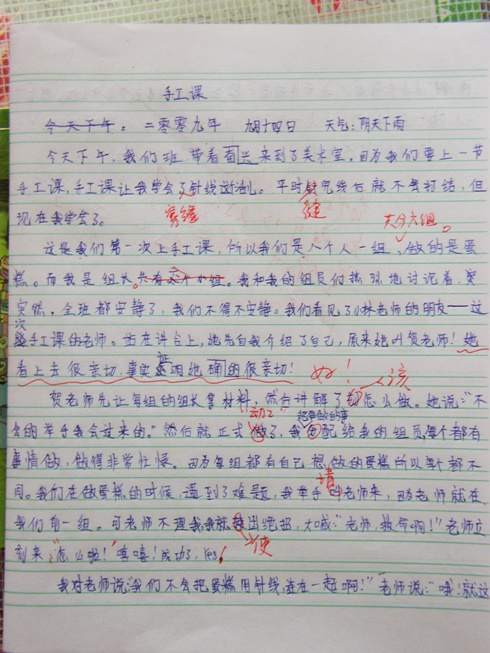 手工课
今天下午。二零零九年 九月十四日 天气:阴天下雨
今天下午,我们班带着面兰来到了美术室。因为我们要上一节
手工课,手工课让我学会了针线进洞。平时 完线后就不会打结,但
现在我学会了。
穿缝
缝
大分六组。
这是我们第一次上手工课,所以我们是八个人一组,做的是蛋
糕。而我是组长 我和我的组员们 地讨论着,突
突然,全班都安静了,我们不得不安静。我们看见了小林老师的朋友——这
次
手工课的老师。站在讲台上,她先自我介绍了自己,原来她叫贺老师!她
看上去很亲切,事实证明她 的很亲切!
好!
该
贺老师先让每组的组长拿材料,然后讲解了 怎么做。她说:“不
会的举手我会过来的。”然后就正式 了,我 配给我的组员,每个都有
动工
把要做的事
事情做,做得非常忙候。因为每组都有自己想做的蛋糕所以每个都不
同。我们在做蛋糕的时候,遇到了难题,我举手 老师来,因为老师就在
请
我们前一组。可老师不理我我就 出绝招,大喊:“老师,救命啊!”老师立
使
刻来,“怎么啦!”“嘻嘻!成功了,
我对老师说:“我们不会把蛋糕用针线 在一起啊!”老师说:“哦!就这